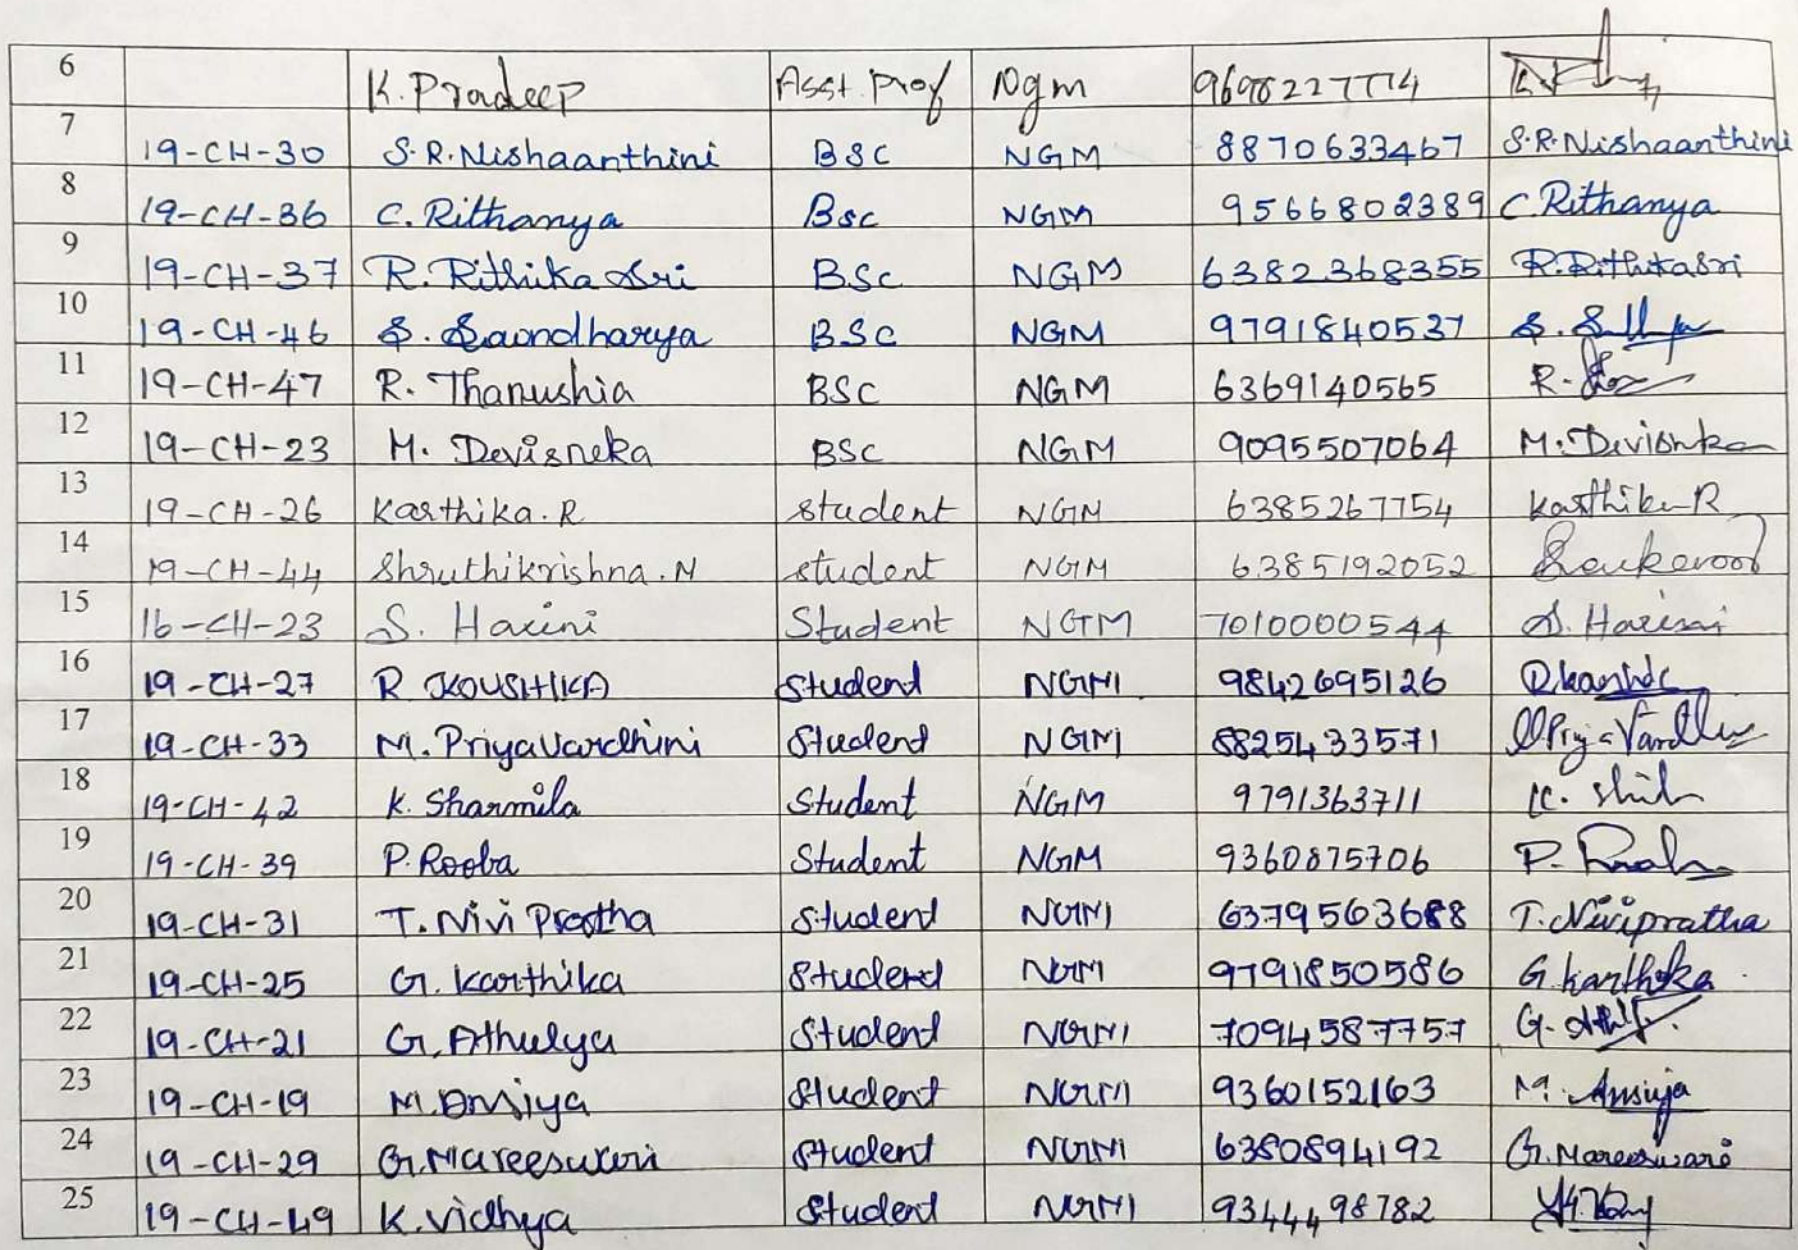 6 K. Pradeep Asst. Prof Ngm
7 19-CH-30 S.R.Nishaanthini BSC NGM 8870633467 S.R.Nishaanthini
8 19-CH-36 C. Rithanya Bsc NGM 9566802389 C.Rithanya
9 19-CH-37 R.Rithika Sri BSc NGM 6382368355 R.Rithikasri
10 19-CH-46 S. Saondharya BSC NGM 9791840537 S.
11 19-CH-47 R. Thanushia BSC NGM 6369140565 R.
12 19-CH-23 M. Devisneka BSC NGM 9095507064 M.
13 19-CH-26 Karthika.R student NGM 6385267754 Karthika R
14 19-CH-44 Shruthikrishna.N student NGM 6385192052
15 16-CH-23 S. Harini Student NGM 7010000544 S. Harini
16 19-CH-27 R KOUSHIKA Student NGM 9842695126
17 19-CH-33 M.Priyavardhini Student NGM 8825433571
18 19-CH-42 K. Sharmila Student NGM 9791363711 K.
19 19-CH-39 P.Rooba Student NGM 9360875706 P.
20 19-CH-31 T.Nivi Pratha Student NGM 6379563688 T.Nivipratha
21 19-CH-25 G.Karthika Student NGM 9791850586 G.Karthika
22 19-CH-21 G.Athulya Student NGM 7094587757 G.
23 19-CH-19 M.Amsiya Student NGM 9360152163 M.
24 19-CH-29 G.Mareeswari Student NGM 6380894192 G.Mareeswari
25 19-CH-49 K.Vidhya Student NGM 9344498782